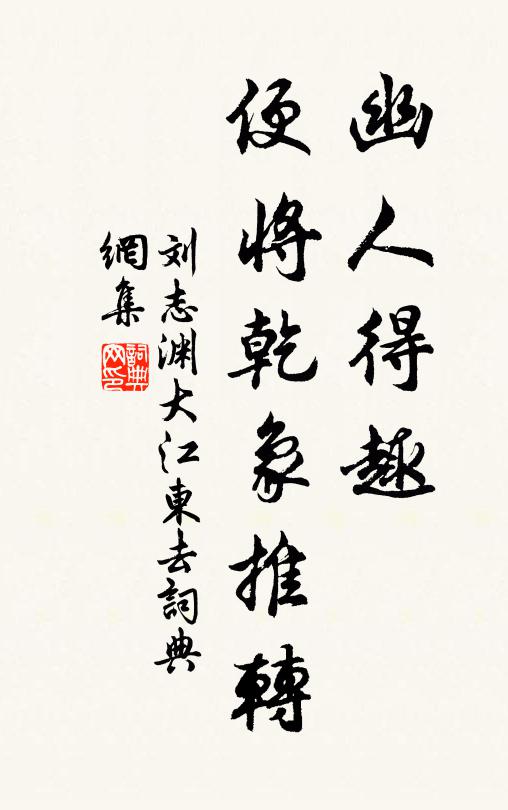 幽人得趣
便將乾象推轉
刘志渊大江東去詞典
網集
詞典
网印